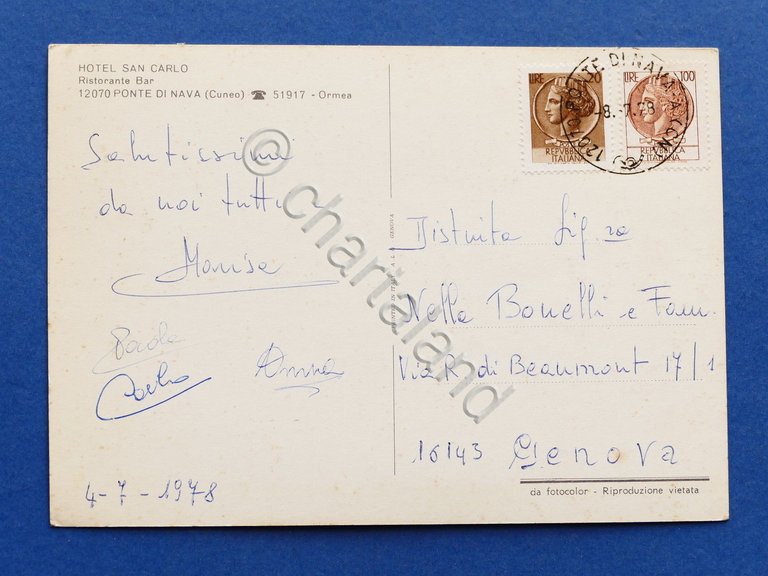 HOTEL SAN CARLO
Ristorante Bar
12070 PONTE DI NAVA (Cuneo) ☎ 51917 - Ormea
Salutissimi
da noi tutti
Marisa
Paola
Carlo
Anna
4-7-1978
LIRE 20
REPUBBLICA
ITALIANA
LIRE 100
REPUBBLICA
ITALIANA
PONTE DI NAVA
-8.-7.78
GENOVA
Distinta Sig.ra
Nella Bonelli e Fam.
Via R. di Beaumont 17/1
16143 Genova
da fotocolor - Riproduzione vietata
© chartaland